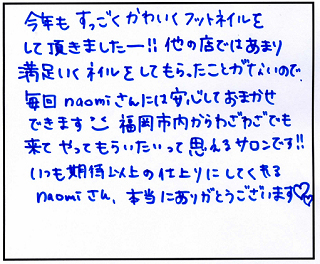 今年もすっごくかわいくフットネイルを
して頂きましたー!! 他の店ではあまり
満足いくネイルをしてもらったことがないので、
毎回naomiさんには安心しておまかせ
できます 福岡市内からわざわざでも
来てやってもらいたいって思えるサロンです!!
いつも期待以上の仕上りにしてくれる
naomiさん、本当にありがとうございます♡♡